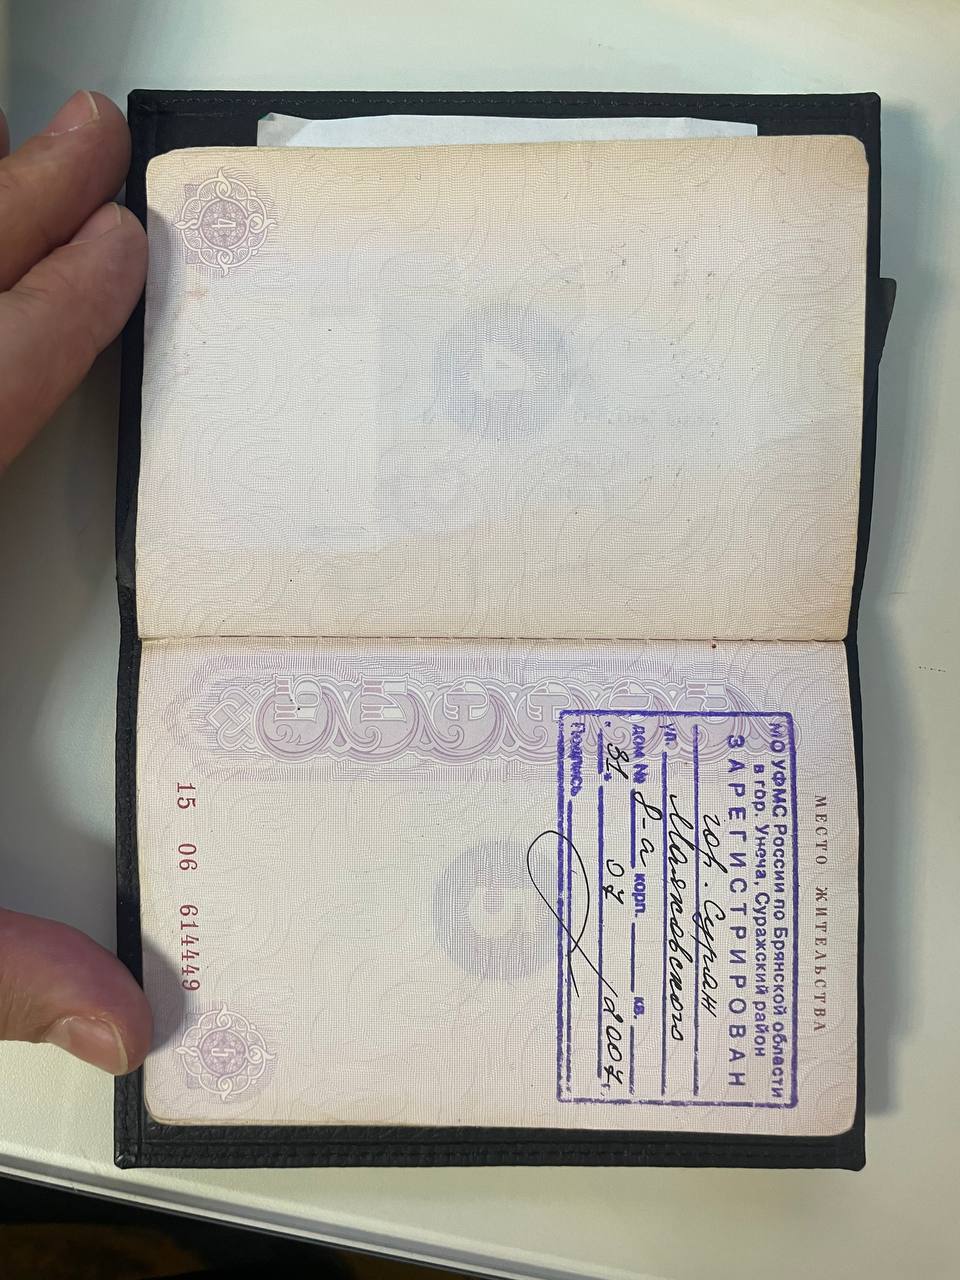 4
4
МЕСТО ЖИТЕЛЬСТВА
МО УФМС России по Брянской области
в гор. Унеча, Суражский район
ЗАРЕГИСТРИРОВАН
гор. Сураж
ул. Маяковского
дом № 8-а корп. кв.
"31" 07 2007 г.
Подпись
5
15 06 614449
5